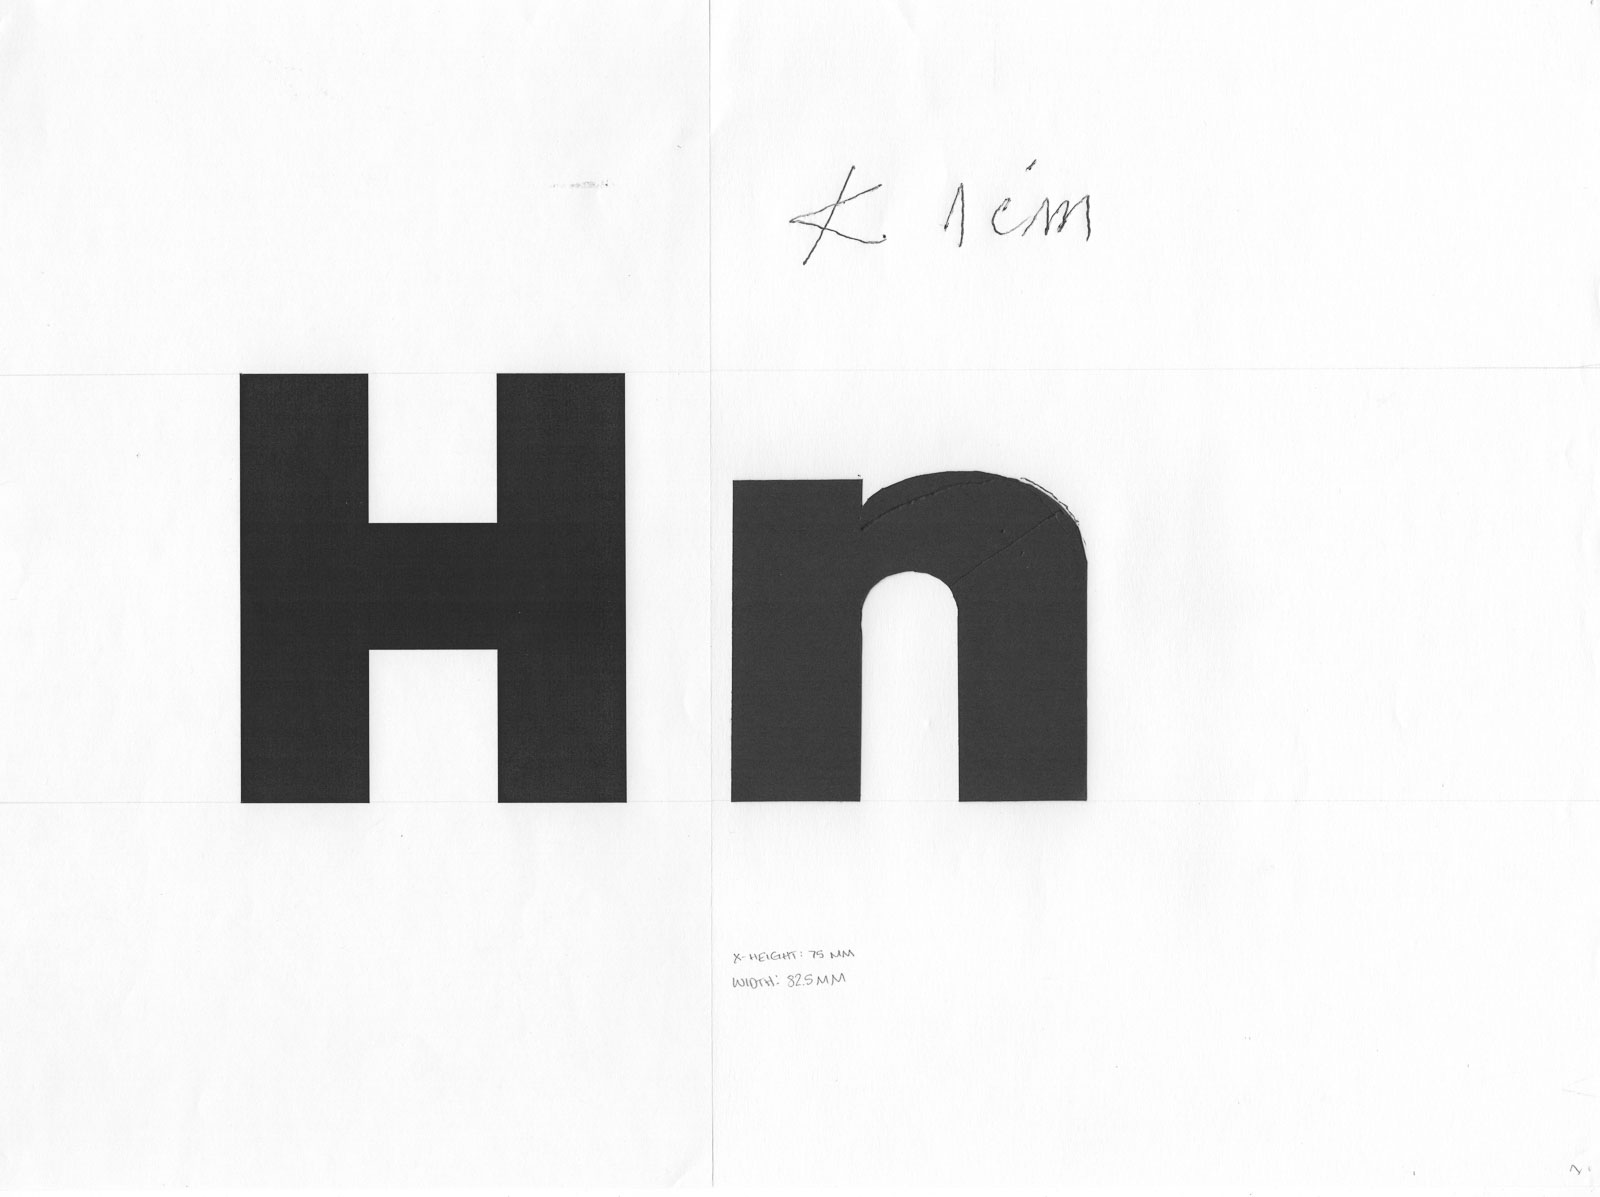 K 1cm
Hn
X-HEIGHT: 75 MM
WIDTH: 82.5 MM